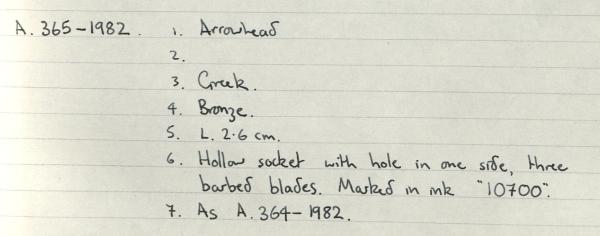 A. 365-1982. 1. Arrowhead
2.
3. Greek.
4. Bronze.
5. L. 2.6 cm.
6. Hollow socket with hole in one side, three
barbed blades. Marked in ink "10700".
7. As A. 364-1982.